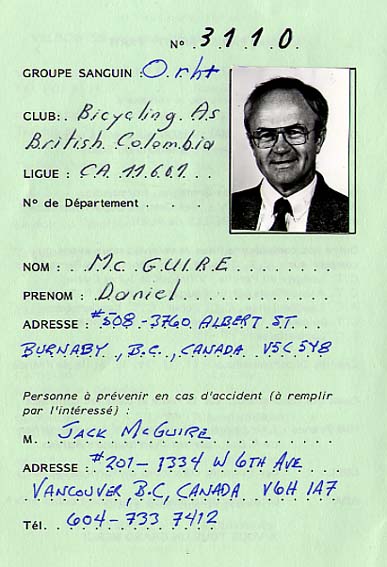 N° 3110
GROUPE SANGUIN : O.rh+
CLUB: Bicycling As
British Colombia
LIGUE : CA 11.6.01
N° de Département
NOM : Mc GUIRE
PRENOM : Daniel
ADRESSE : #508-3760 ALBERT ST.
BURNABY, B.C., CANADA V5C 5Y8
Personne à prévenir en cas d'accident (à remplir
par l'intéressé) :
M. JACK McGUIRE
ADRESSE : #201-1334 W 6TH AVE
VANCOUVER, B.C, CANADA V6H 1A7
Tél. 604-733 7412